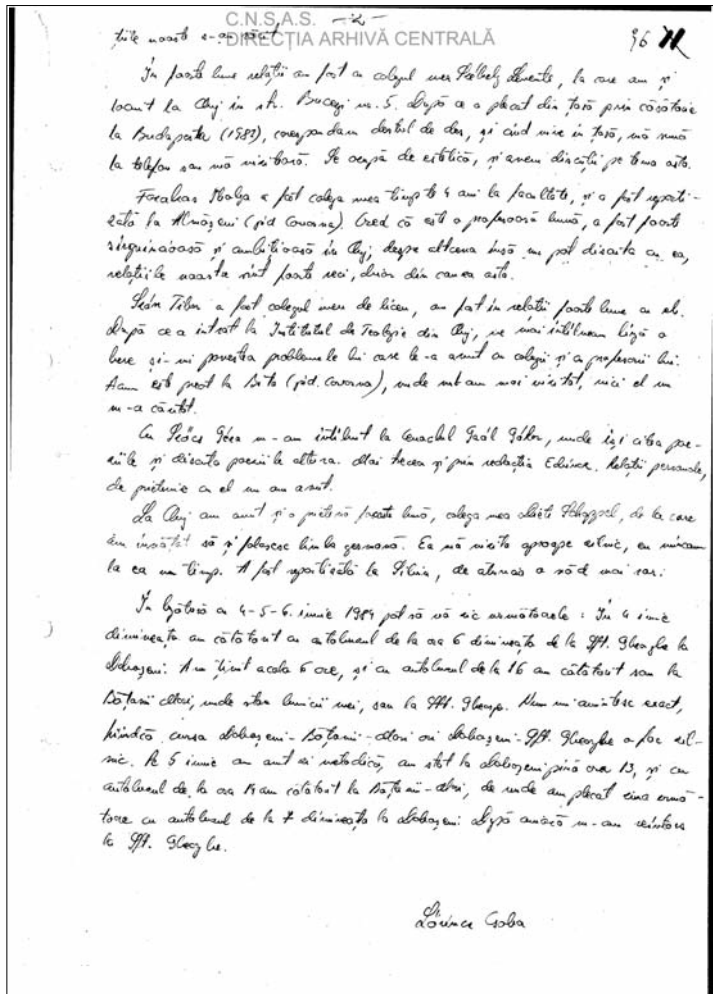 C.N.S.A.S. -2-
DIRECȚIA ARHIVĂ CENTRALĂ 96
țiile noastre s-au răcit.
În foarte bune relații am fost cu colegul meu Székely Levente, la care am și
locuit la Cluj în str. Bucegi nr. 5. După ce a plecat din țară prin căsătorie
la Budapesta (1983), corespondam destul de des, și cînd vine în țară, mă sună
la telefon sau mă vizitează. Se ocupă de estetică, și avem discuții pe tema asta.
Farkas Ibolya a fost colega mea timp de 4 ani la facultate, și a fost reparti-
zată la Almășeni (jud Covasna). Cred că este o profesoară bună, a fost foarte
sîrguincioasă și ambițioasă în Cluj; despre altceva însă nu pot discuta cu ea,
relațiile noastre sînt foarte reci, doar din cauza asta.
Tibor a fost colegul meu de liceu, am fost în relații foarte bune cu el.
După ce a intrat la Institutul de Teologie din Cluj, ne mai întîlneam lîngă o
bere și-mi povestea problemele lui care le-a avut cu colegii și cu profesorii lui.
Acum este preot la Bita (jud. Covasna), unde nu l-am mai vizitat, nici el nu
m-a căutat.
Cu Szőcs Géza m-am întîlnit la Cenaclul Gaál Gábor, unde își citea poe-
ziile și discuta poeziile altora. Mai trecea și prin redacția Echinox. Relații personale,
de prietenie cu el nu am avut.
La Cluj am avut și o prietenă foarte bună, colega mea de la care
am învățat să și folosesc limba germană. Ea mă vizita aproape zilnic, eu mîncam
la ea un timp. A fost repartizată la Sibiu, de atunci o văd mai rar.
În legătură cu 4-5-6. iunie 1984 pot să vă zic următoarele: În 4 iunie
dimineața am călătorit cu autobuzul de la ora 6 dimineața de la Sft. Gheorghe la
Doboșeni. Am ținut acolo 6 ore, și cu autobuzul de la 16 am călătorit sau la
Bățanii Mari, unde stau bunicii mei, sau la Sft. Gheorghe. Nu mi amintesc exact,
fiindcă cursa Doboșeni-Bățanii-Mari ori Doboșeni-Sft. Gheorghe o fac zil-
nic. Pe 5 iunie am avut zi metodică, am stat la Doboșeni pînă ora 13, și cu
autobuzul de la ora 14 am călătorit la Bățanii-Mari, de unde am plecat ziua urmă-
toare cu autobuzul de la 7 dimineața la Doboșeni. După amiază m-am reîntors
la Sft. Gheorghe.
Lőrincz Csaba